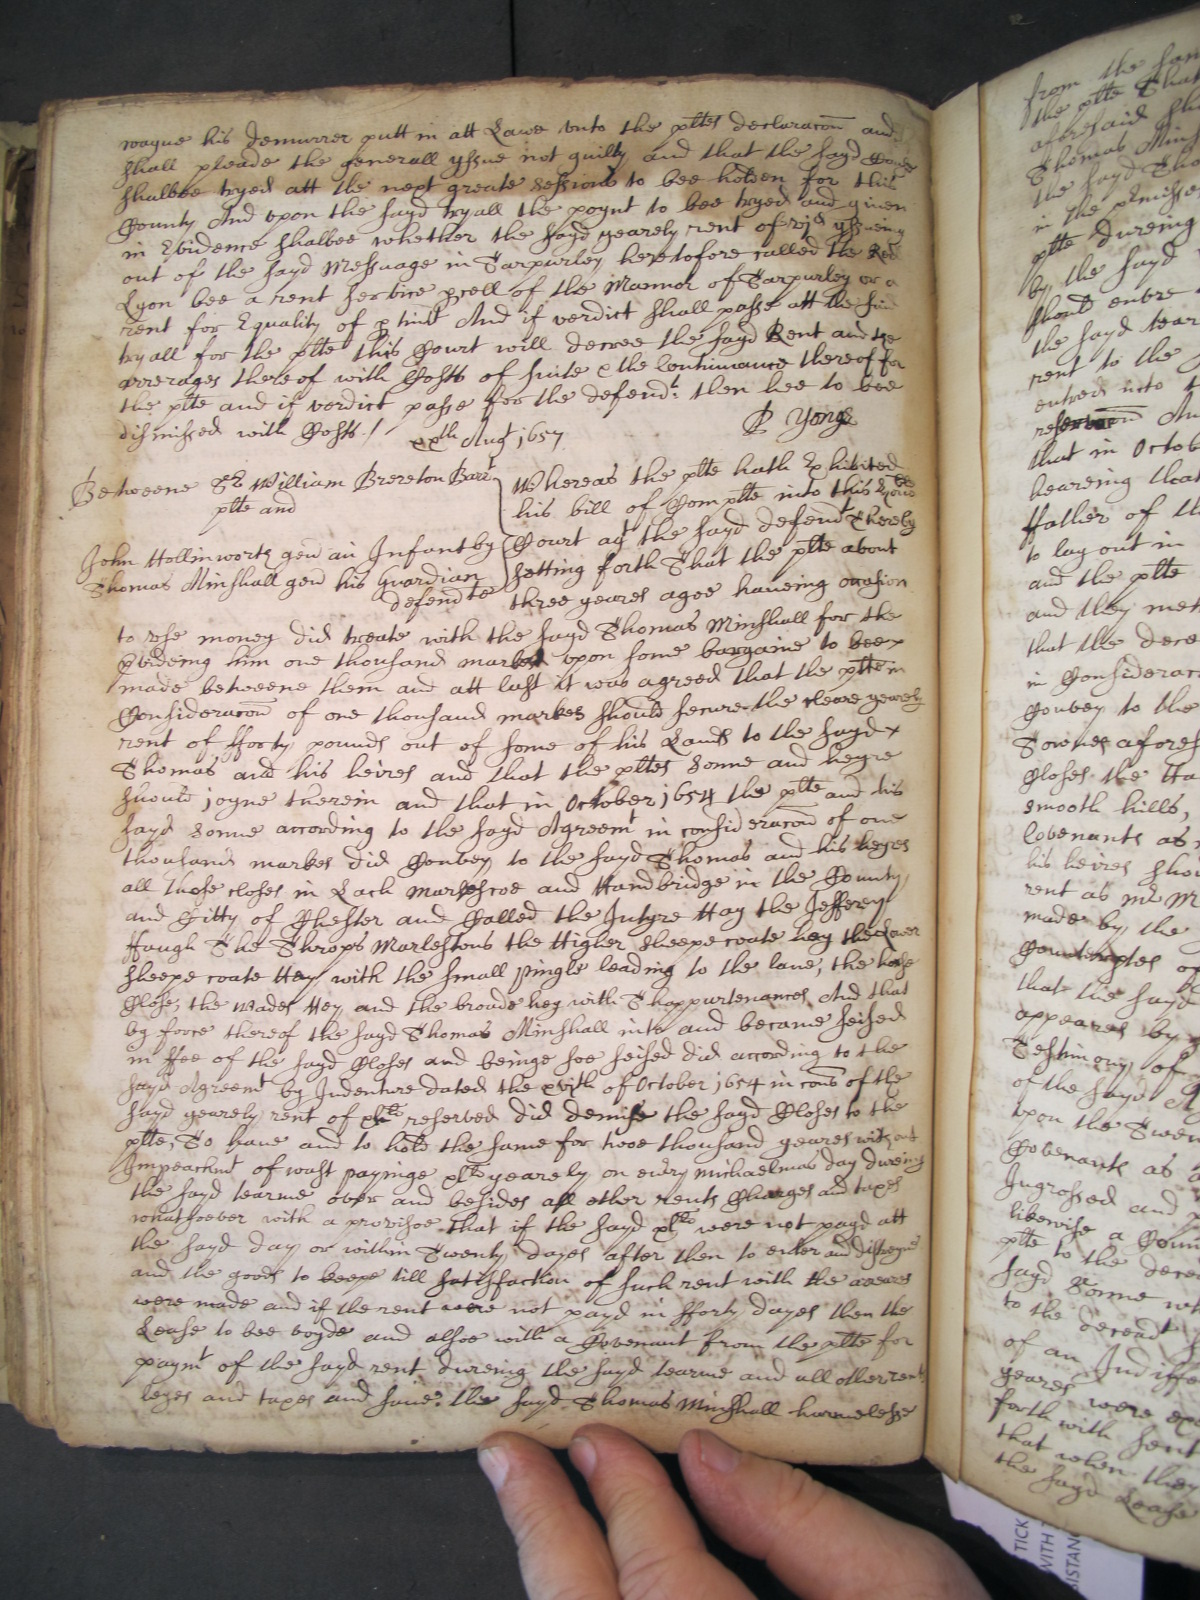 wayue his demurrer putt in att Lawe vnto the pltes declaracon and
shall pleade the generall yssue not guilty and that the sayd
shalbee tryed att the next greate sessions to bee holden for this
County And vpon the sayd tryall the poynt to bee tryed and giuen
in Evidence shalbee whether the sayd yearely rent of vjd yssueing
out of the sayd Messuage in Tarpurley heretofore called the Red
Lyon bee a rent service pcell of the Mannor of Tarpurley or a
rent for Equality of And if verdict shall passe att the said
tryall for the plte this Court will decree the sayd Rent and the
arrerages thereof with Costs of suite & the Contynuance thereof for
the plte and if verdict passe for the defendt then hee to bee
dismissed with Costs /
P Yonge
xxth Augt 1657
Betweene Sr William Brereton Barrt
plte and
John Hollinworth gen an Infant by
Thomas Minshall gen his Guardian
defendte
Whereas the plte hath Exhibited
his bill of Complte into this
Court agt the sayd defendt thereby
setting forth That the plte about
three yeares agoe haueing occasion
to rose money did treate with the sayd Thomas Minshall for the
him one thousand markes vpon some bargaine to bee
made betweene them and att last it was agreed that the plte in
Consideracon of one thousand markes should secure the cleare yearely
rent of fforty pounds out of some of his Lands to the sayd
Thomas and his heires and that the pltes Sonne and heyre
should ioyne therein and that in October 1654 the plte and his
sayd Sonne according to the sayd Agreemt in consideracon of one
thousand markes did Convey to the sayd Thomas and his heyres
all those closes in Lach Marlescoe and Handbridge in the County
and Citty of Chester and Called the Intyre Hay the Jefferey
Haugh The Throps Marlestons the Higher sheepe coate hey the Lower
sheepe coate Hey with the small pingle leading to the lane, the
Close, the Wades Hey and the broade hey with Thappurtenances And that
by force thereof the sayd Thomas Minshall into and became seised
in ffee of the sayd Closes and beinge soe seised did according to the
sayd Agreemt by Indenture dated the xvith of October 1654 in cons of the
sayd yearely rent of xlli reserved did demise the sayd Closes to the
plte, To haue and to hold the same for twoe thousand yeares without
Impeachmt of wast payinge xlli yearely on euery michaelmas day dureing
the sayd tearme over and besides all other rents Charges and taxes
whatsoever with a provisoe that if the sayd xlli were not payd att
the sayd day or within Twenty dayes after then to enter and distreyne
and the goods to keepe till satisfaction of such rent with the arreares
were made and if the rent were not payd in fforty dayes then the
Lease to bee voyde and alsoe with a Covenant from the plte for
paymt of the sayd rent dureing the sayd tearme and all other rents
leyes and taxes and saue the sayd Thomas Minshall harmelesse
from the
the plte That
aforesaid
Thomas Min
the sayd Tho
in the premisses
plte dureing
by the sayd
should entre
the sayd tear
rent to the
entred into
An
that in October
beareing that
ffather of th
to lay out in
and the plte
and they met
that the dece
in Consideraco
Convey to the
Townes afores
Closes the Ha
smooth hills,
Covenants as
his heires shou
rent as
made by the
that the sayd
appeares by
Testimony of
of the sayd
vpon the Twen
Covenants as
Ingrossed and
likewise a Coun
plte to the dece
sayd Sonne wh
to the deceadt
of an Indiffe
yeares were exp
forth with sent
that when they
the sayd Lease
TICK
WITH
DISTANC